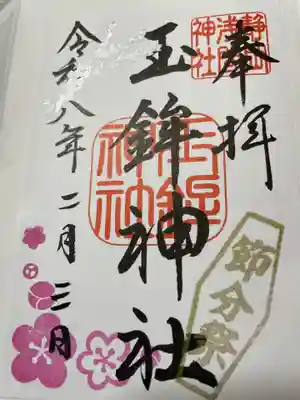 奉拝
静岡
浅間
神社
玉鉾神社
玉鉾
神社
令和八年二月三日
節分祭